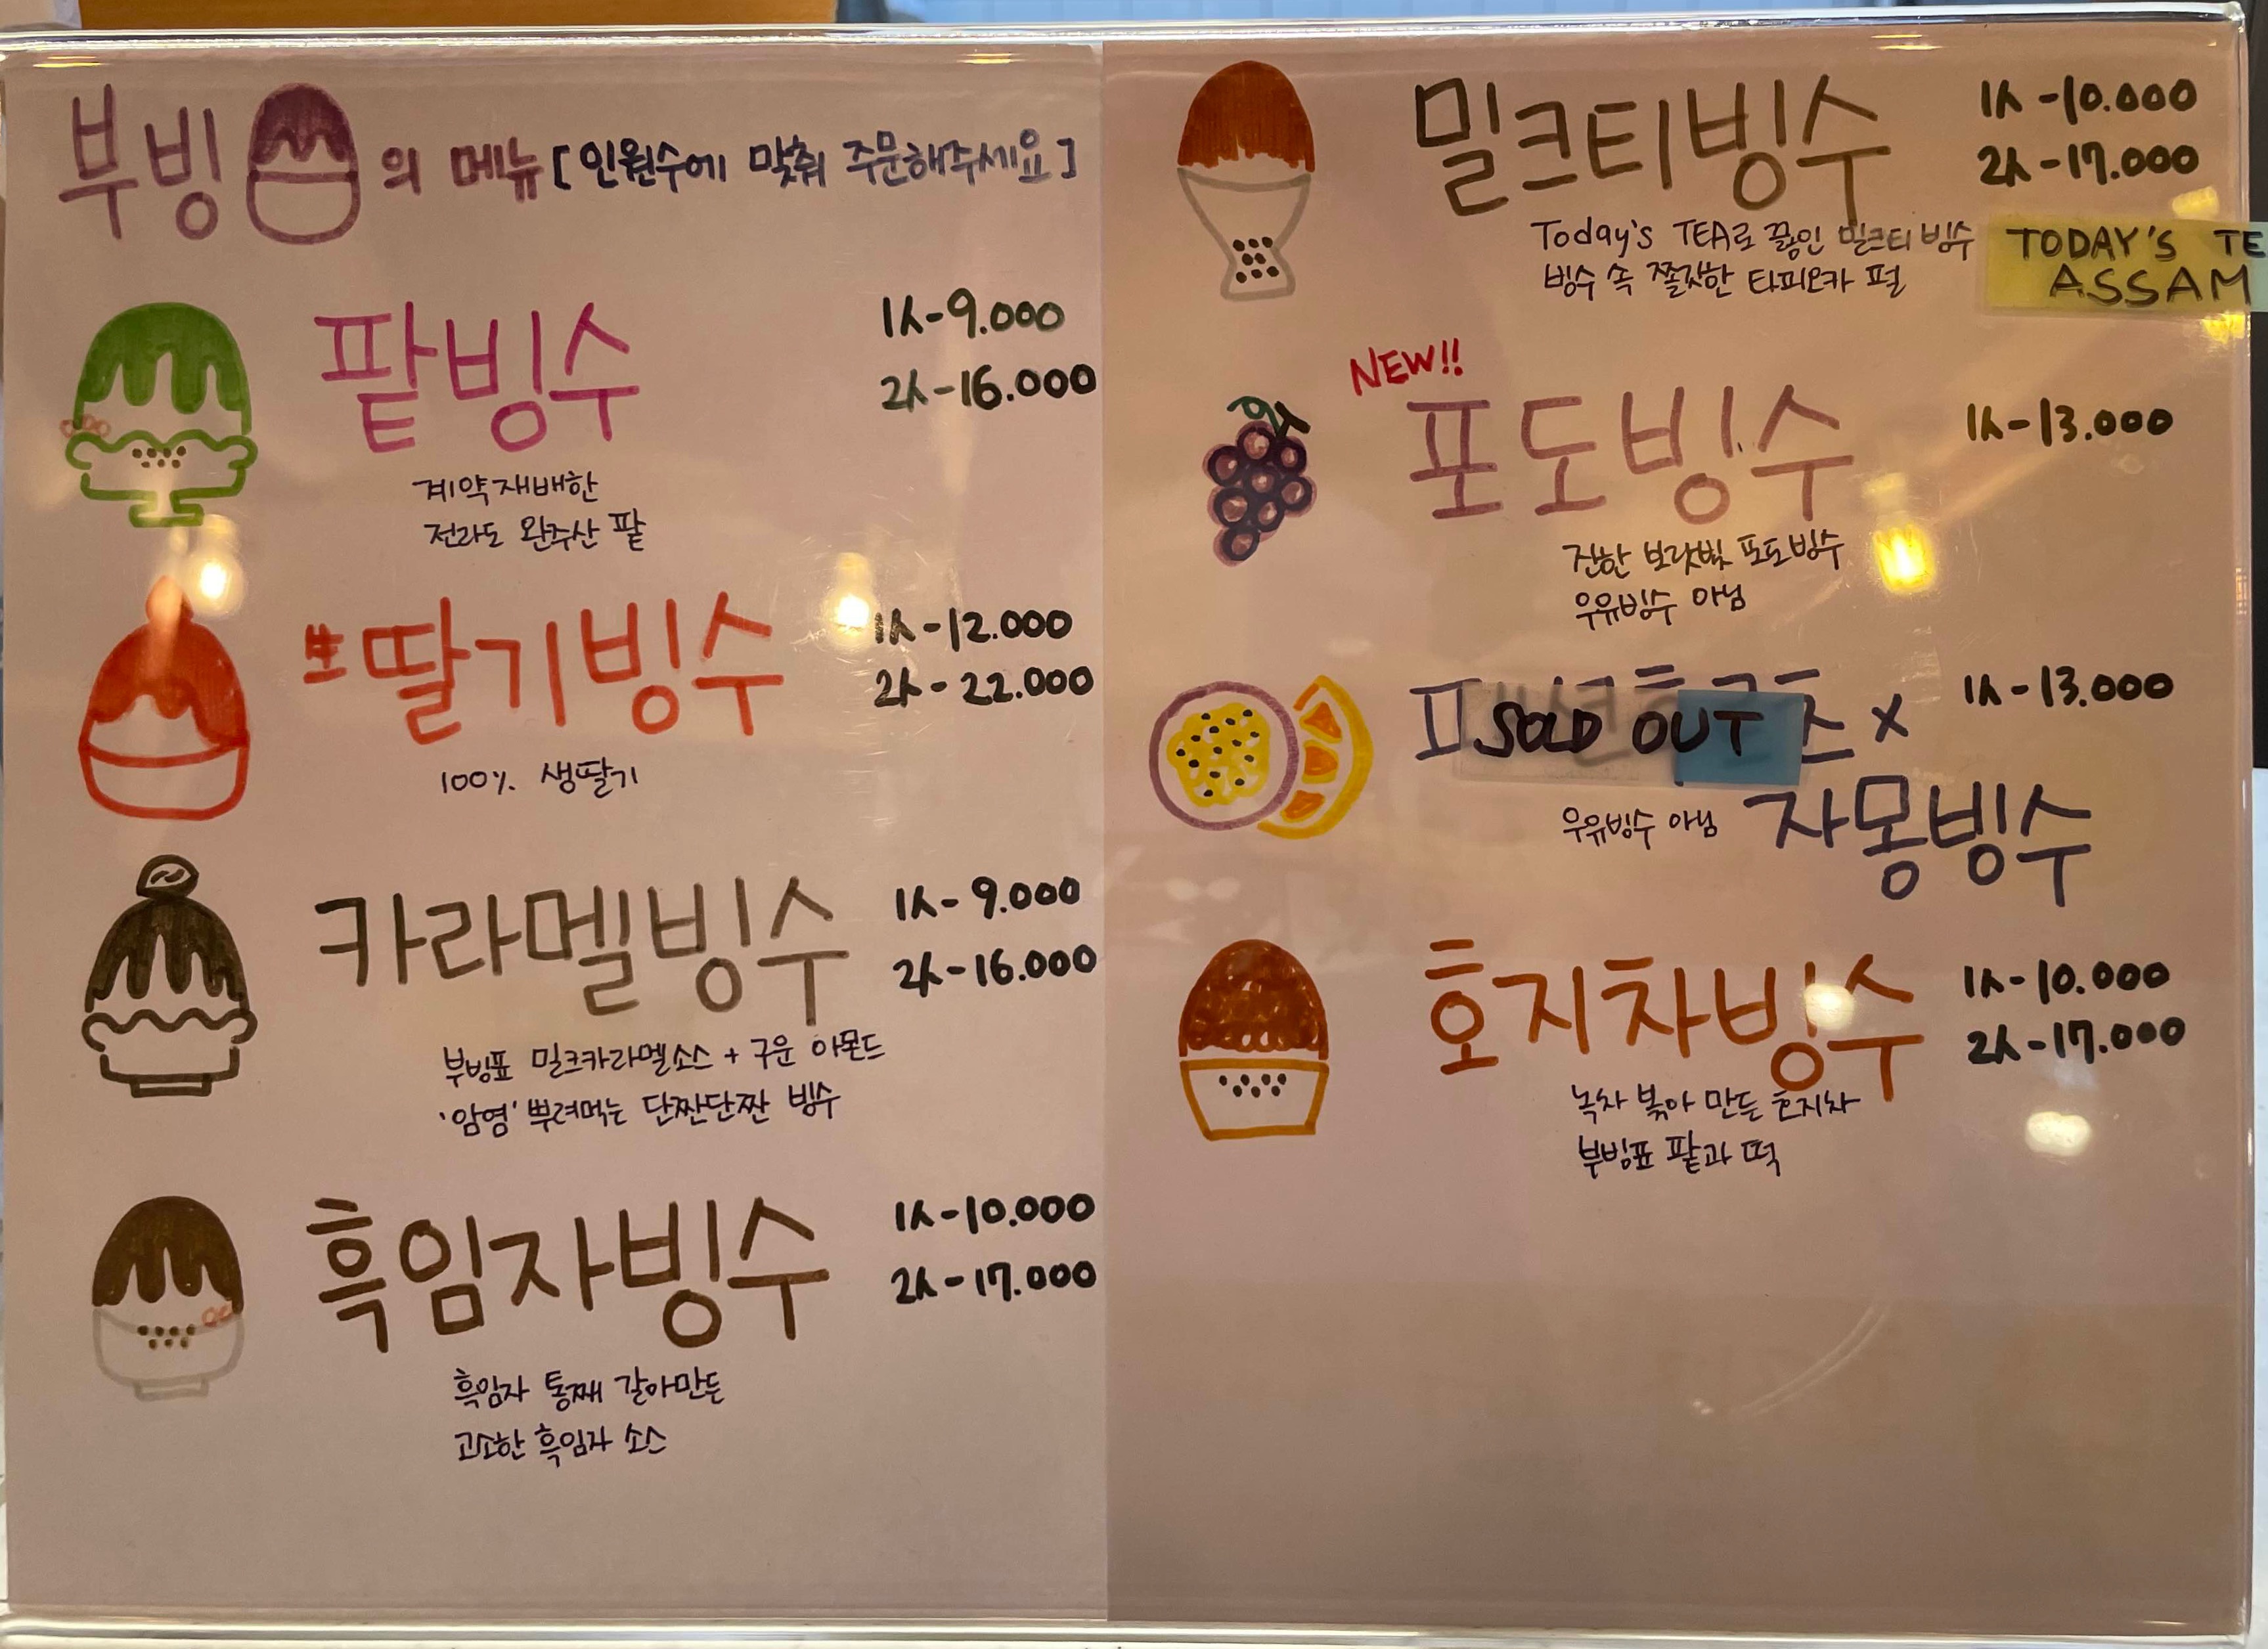 부빙의 메뉴 [인원수에 맞춰 주문해주세요]
팥빙수
1人-9.000
2人-16.000
계약재배한
전라도 완주산 팥
生딸기빙수
1人-12.000
2人-22.000
100% 생딸기
카라멜빙수
1人-9.000
2人-16.000
부빙표 밀크카라멜소스 + 구운 아몬드
'암염' 뿌려먹는 단짠단짠 빙수
흑임자빙수
1人-10.000
2人-17.000
흑임자 통째 갈아만든
고소한 흑임자 소스
밀크티빙수
1人-10.000
2人-17.000
Today's TEA로 끓인 밀크티 빙수
빙수 속 쫄깃한 타피오카 펄
TODAY'S TE
ASSAM
NEW!!
포도빙수
1人-13.000
진한 보랏빛 포도빙수
우유빙수 아님
SOLD OUT
x
1人-13.000
자몽빙수
우유빙수 아님
호지차빙수
1人-10.000
2人-17.000
녹차 볶아 만든 호지차
부빙표 팥과 떡